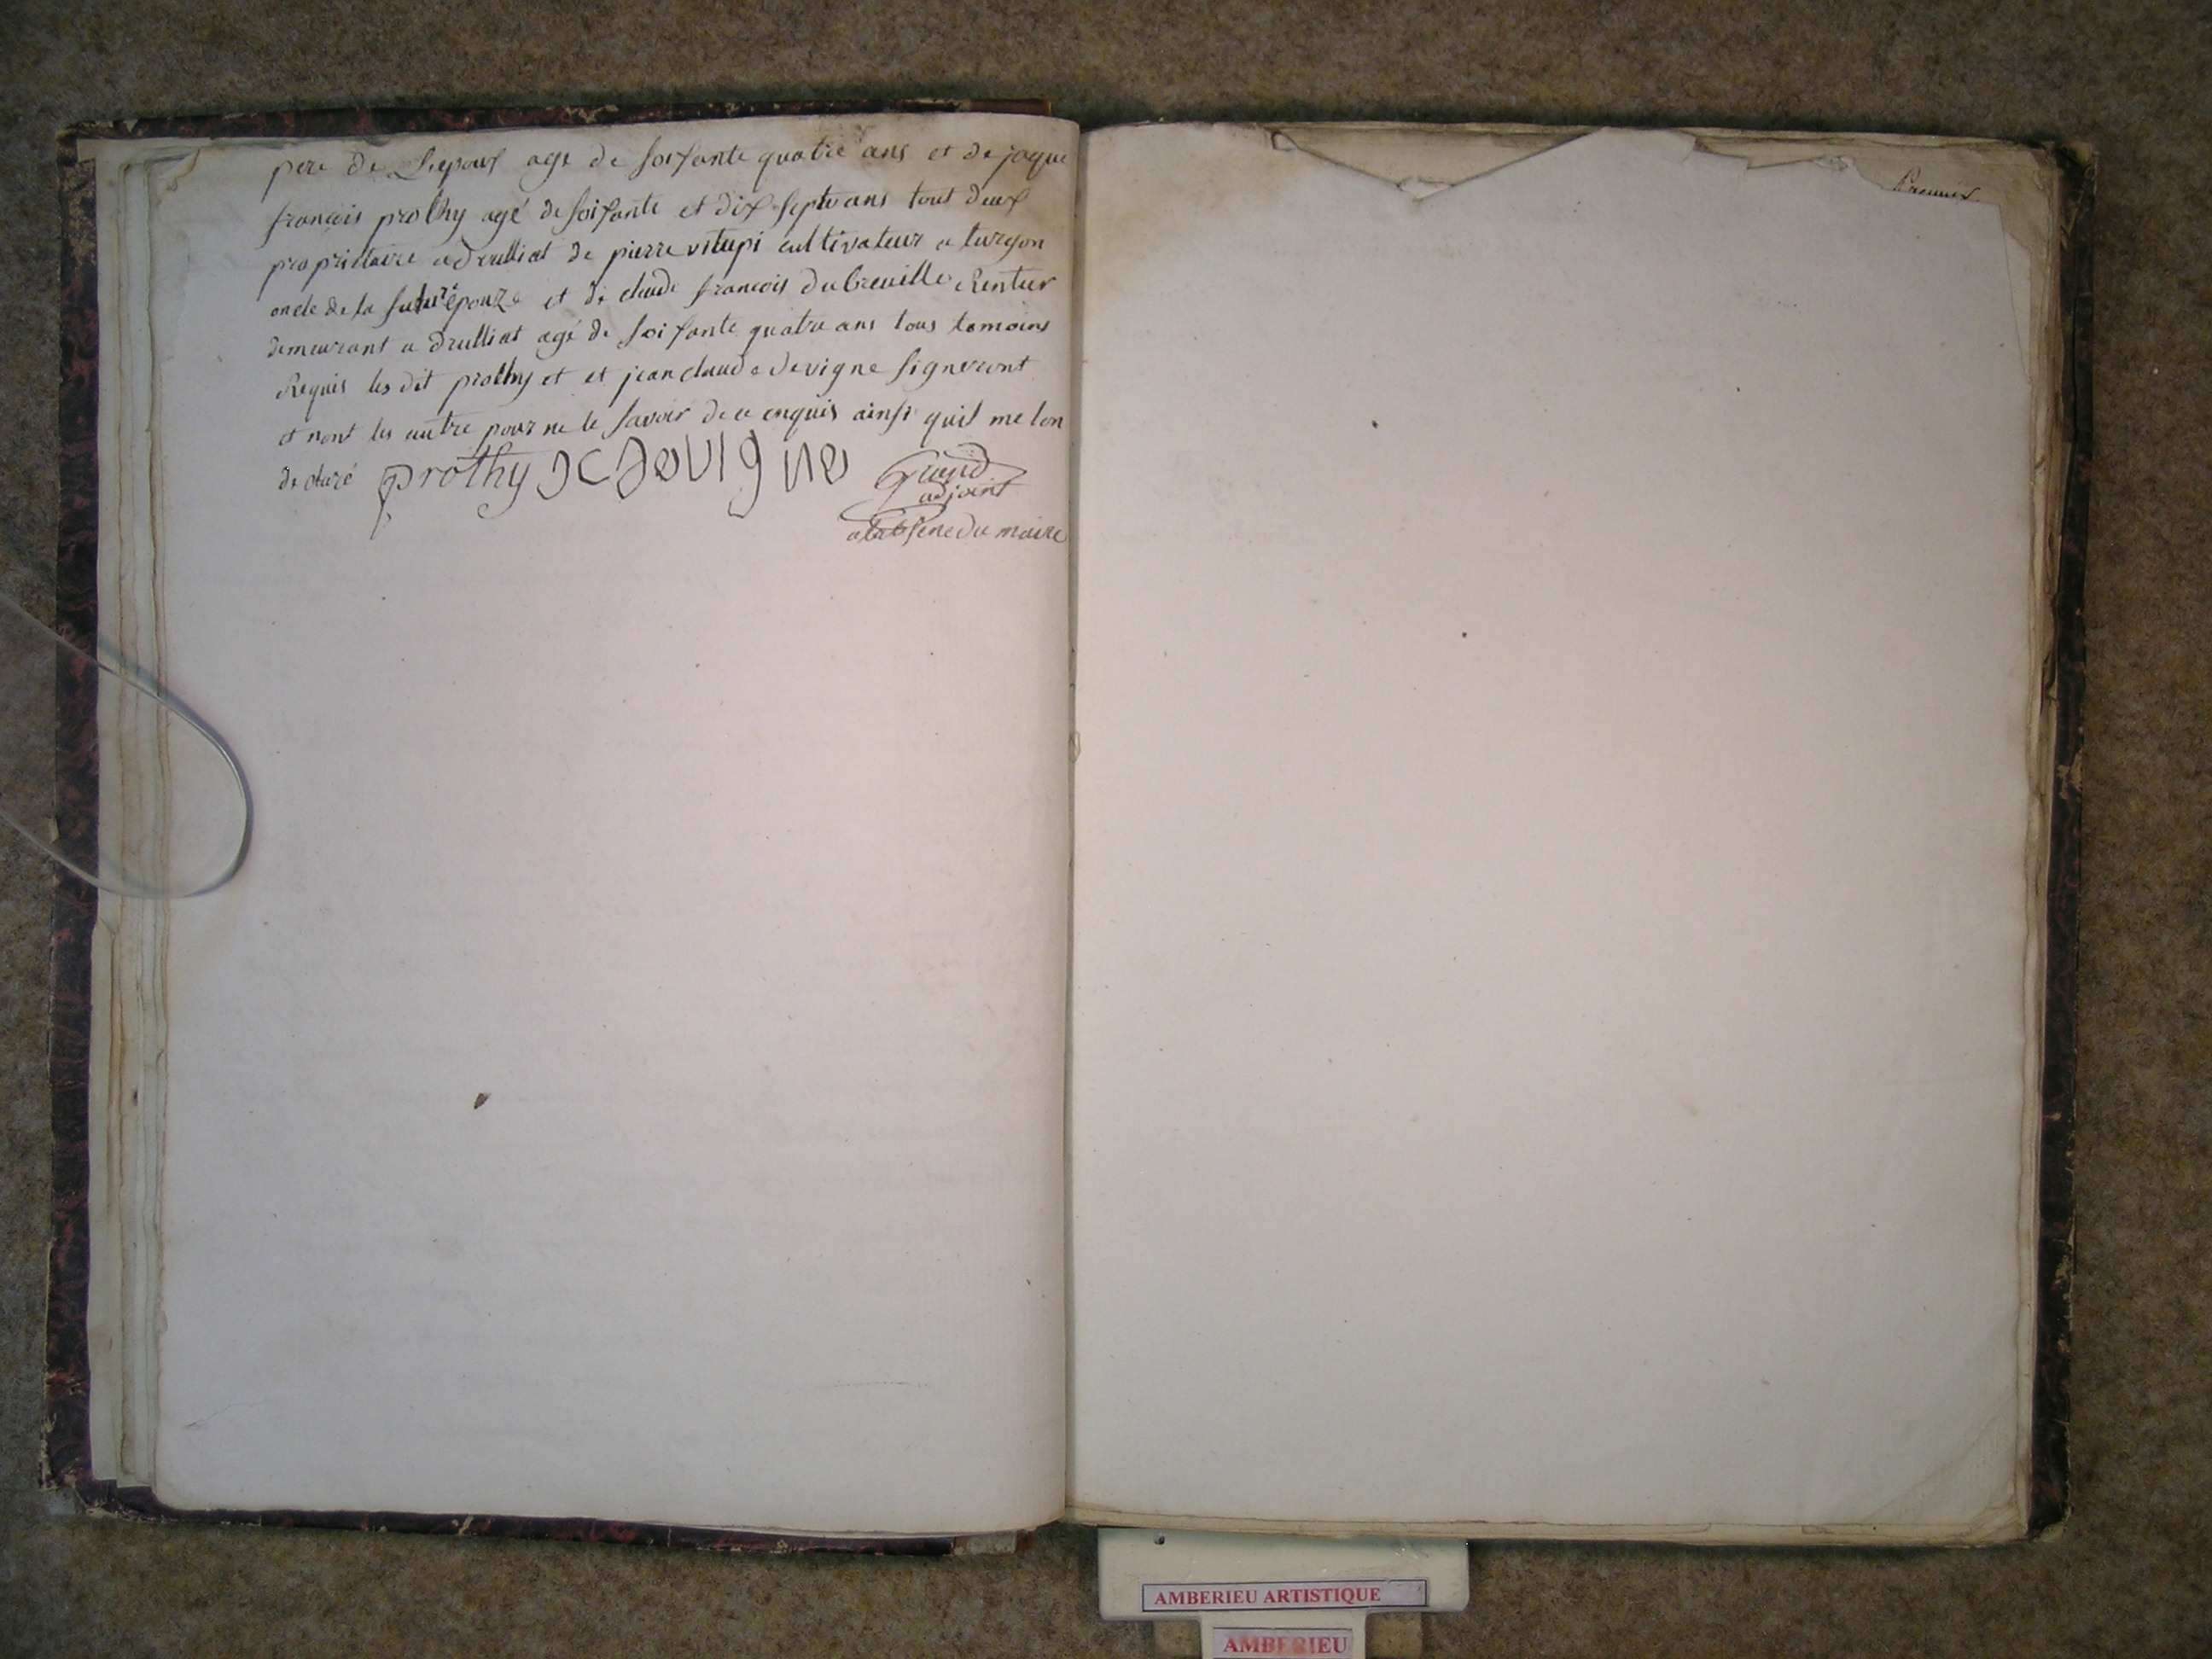 pere de Lepoux age de soixante quatre ans et de jaque
françois prothy agé de soixante et dix septe ans tout deux
proprietaire a druillat de pierre vitupi cultivateur a turgon
oncle de la future épouze et de claude francois dubreuille Rentier
demeurant a druillat agé de soixante quatre ans tous temoins
Requis les dit prothy et et jean claude devigne signeront
et nont les autre pour ne le savoir de ce enquis ainsi quil me lon
declaré prothy JC devigne
adjoint
a labsene du maire
AMBERIEU ARTISTIQUE
AMBERIEU